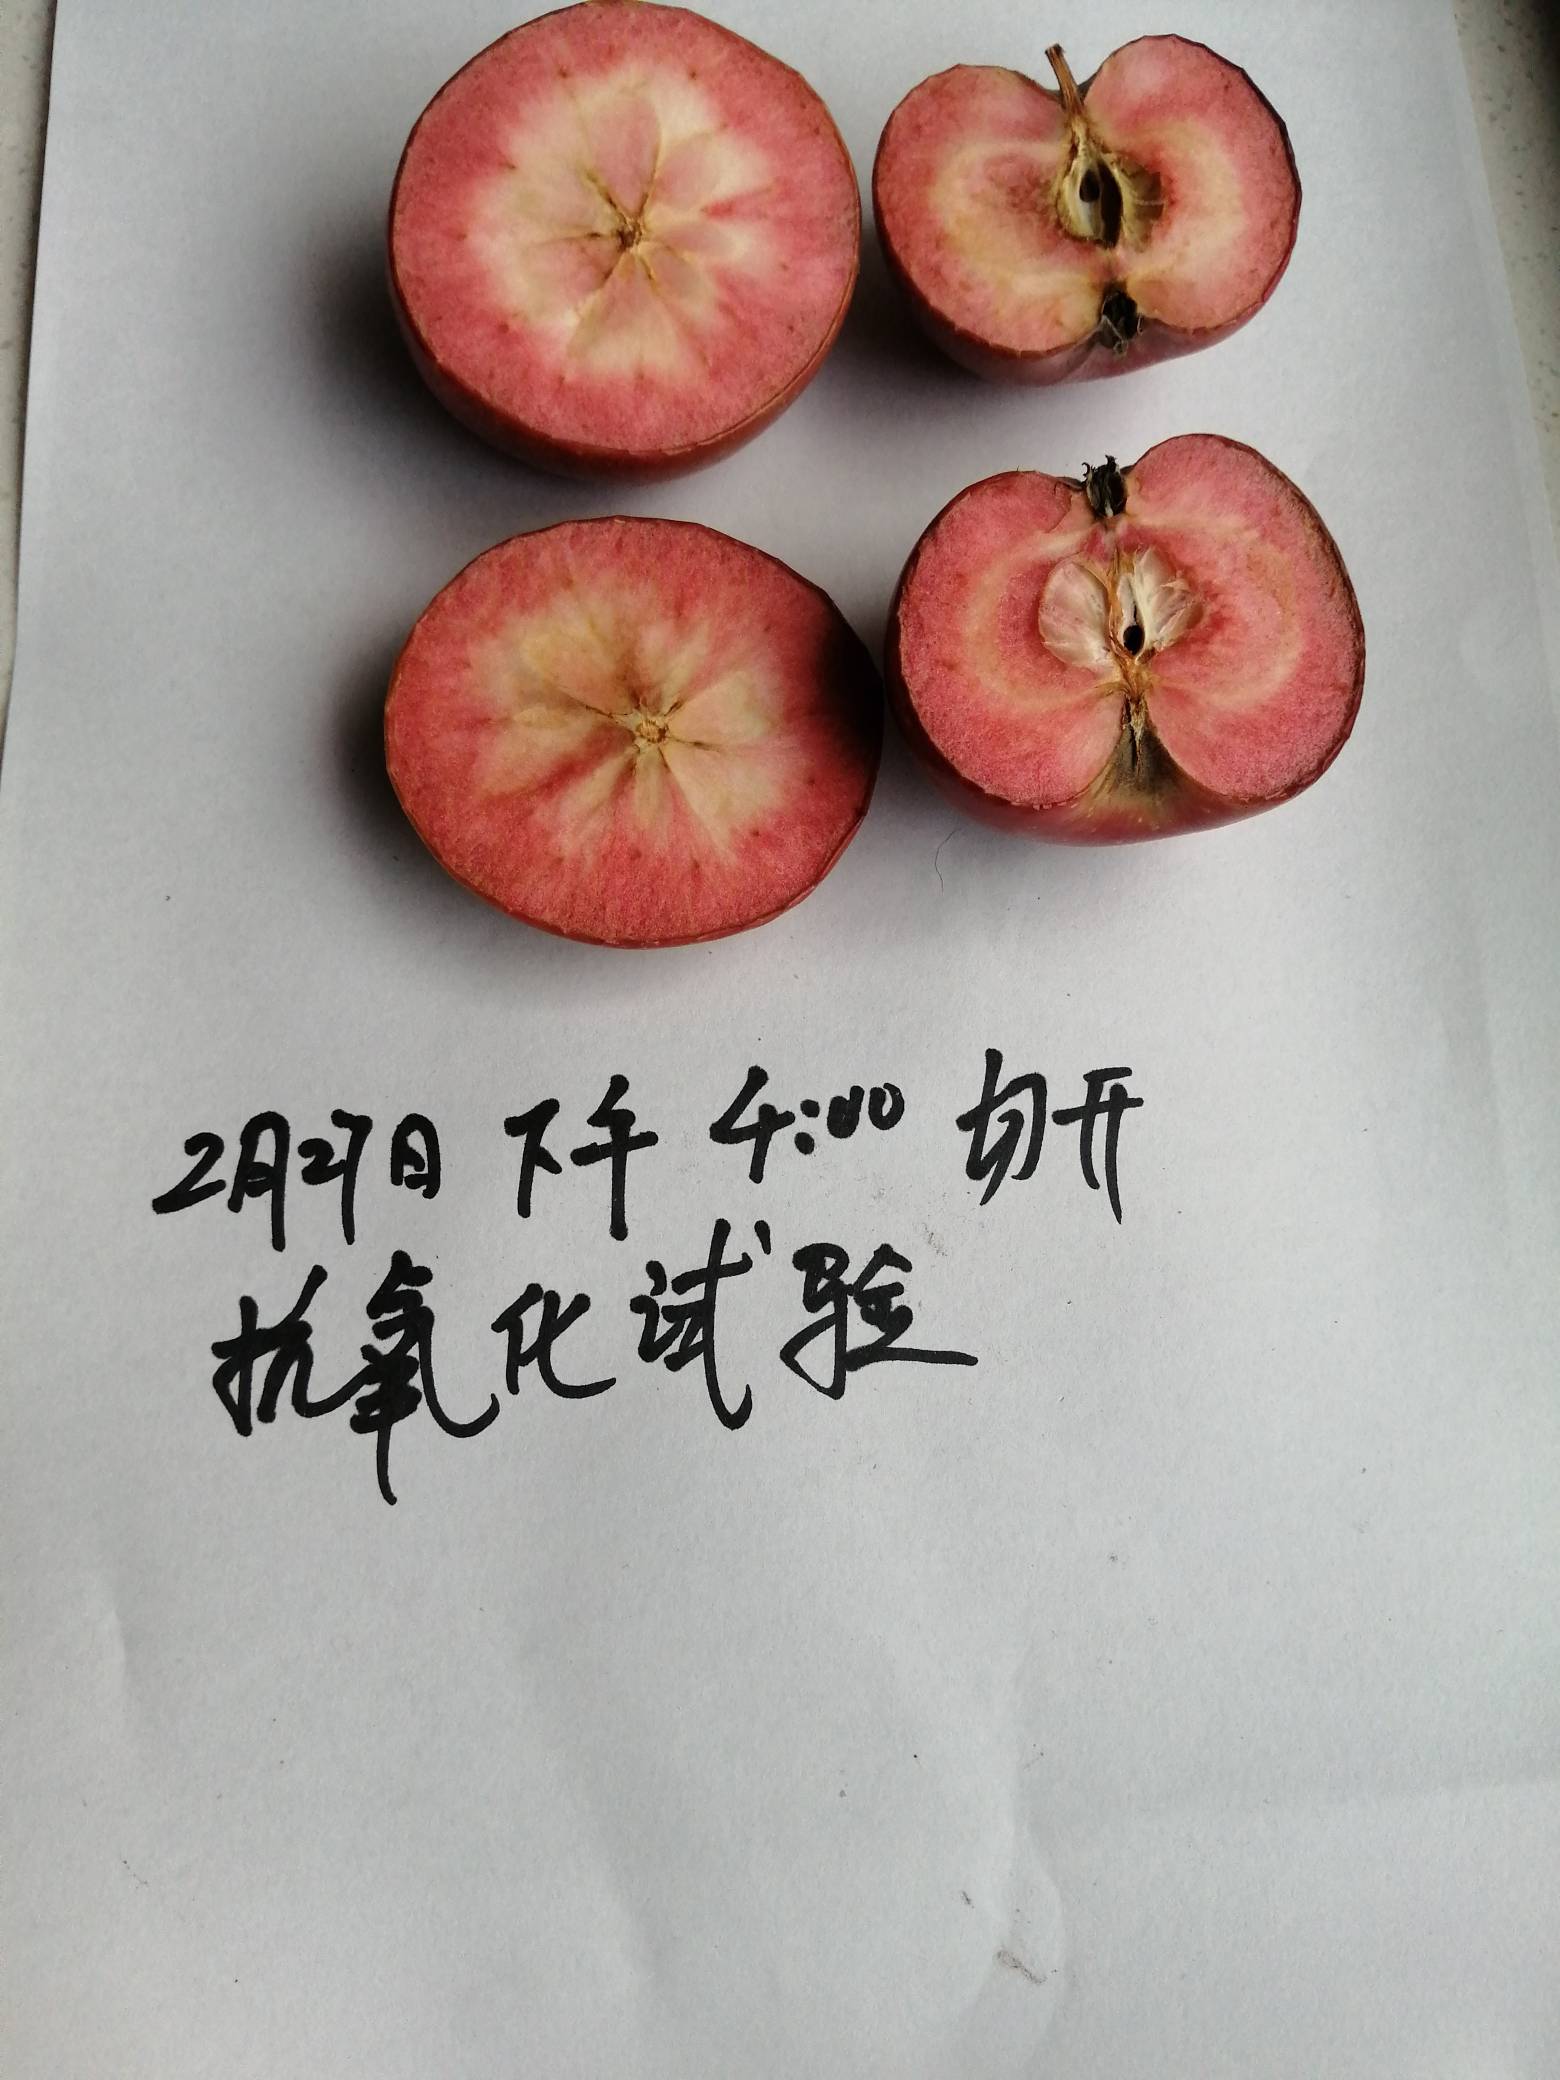 2月27日 下午 4:00 切开
抗氧化试验